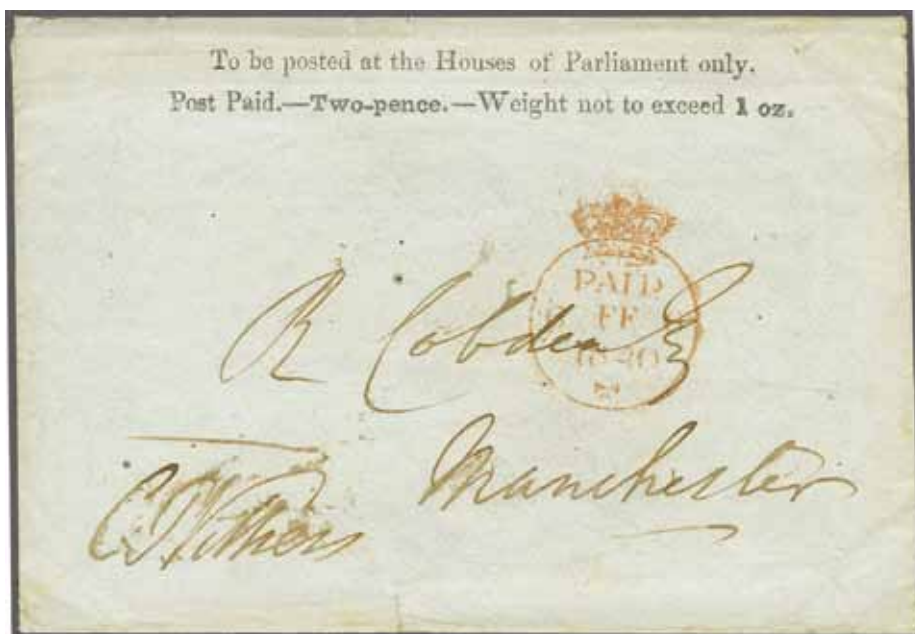 To be posted at the Houses of Parliament only.
Post Paid.—Two-pence.—Weight not to exceed 1 oz.
PAID
1840
R Cobden Esq
Manchester